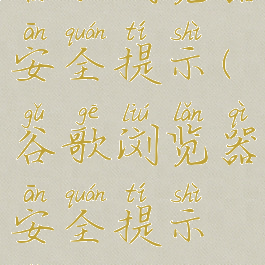 ān quán tí shì
安全提示(
gǔ gē liú lǎn qì
谷歌浏览器
ān quán tí shì
安全提示